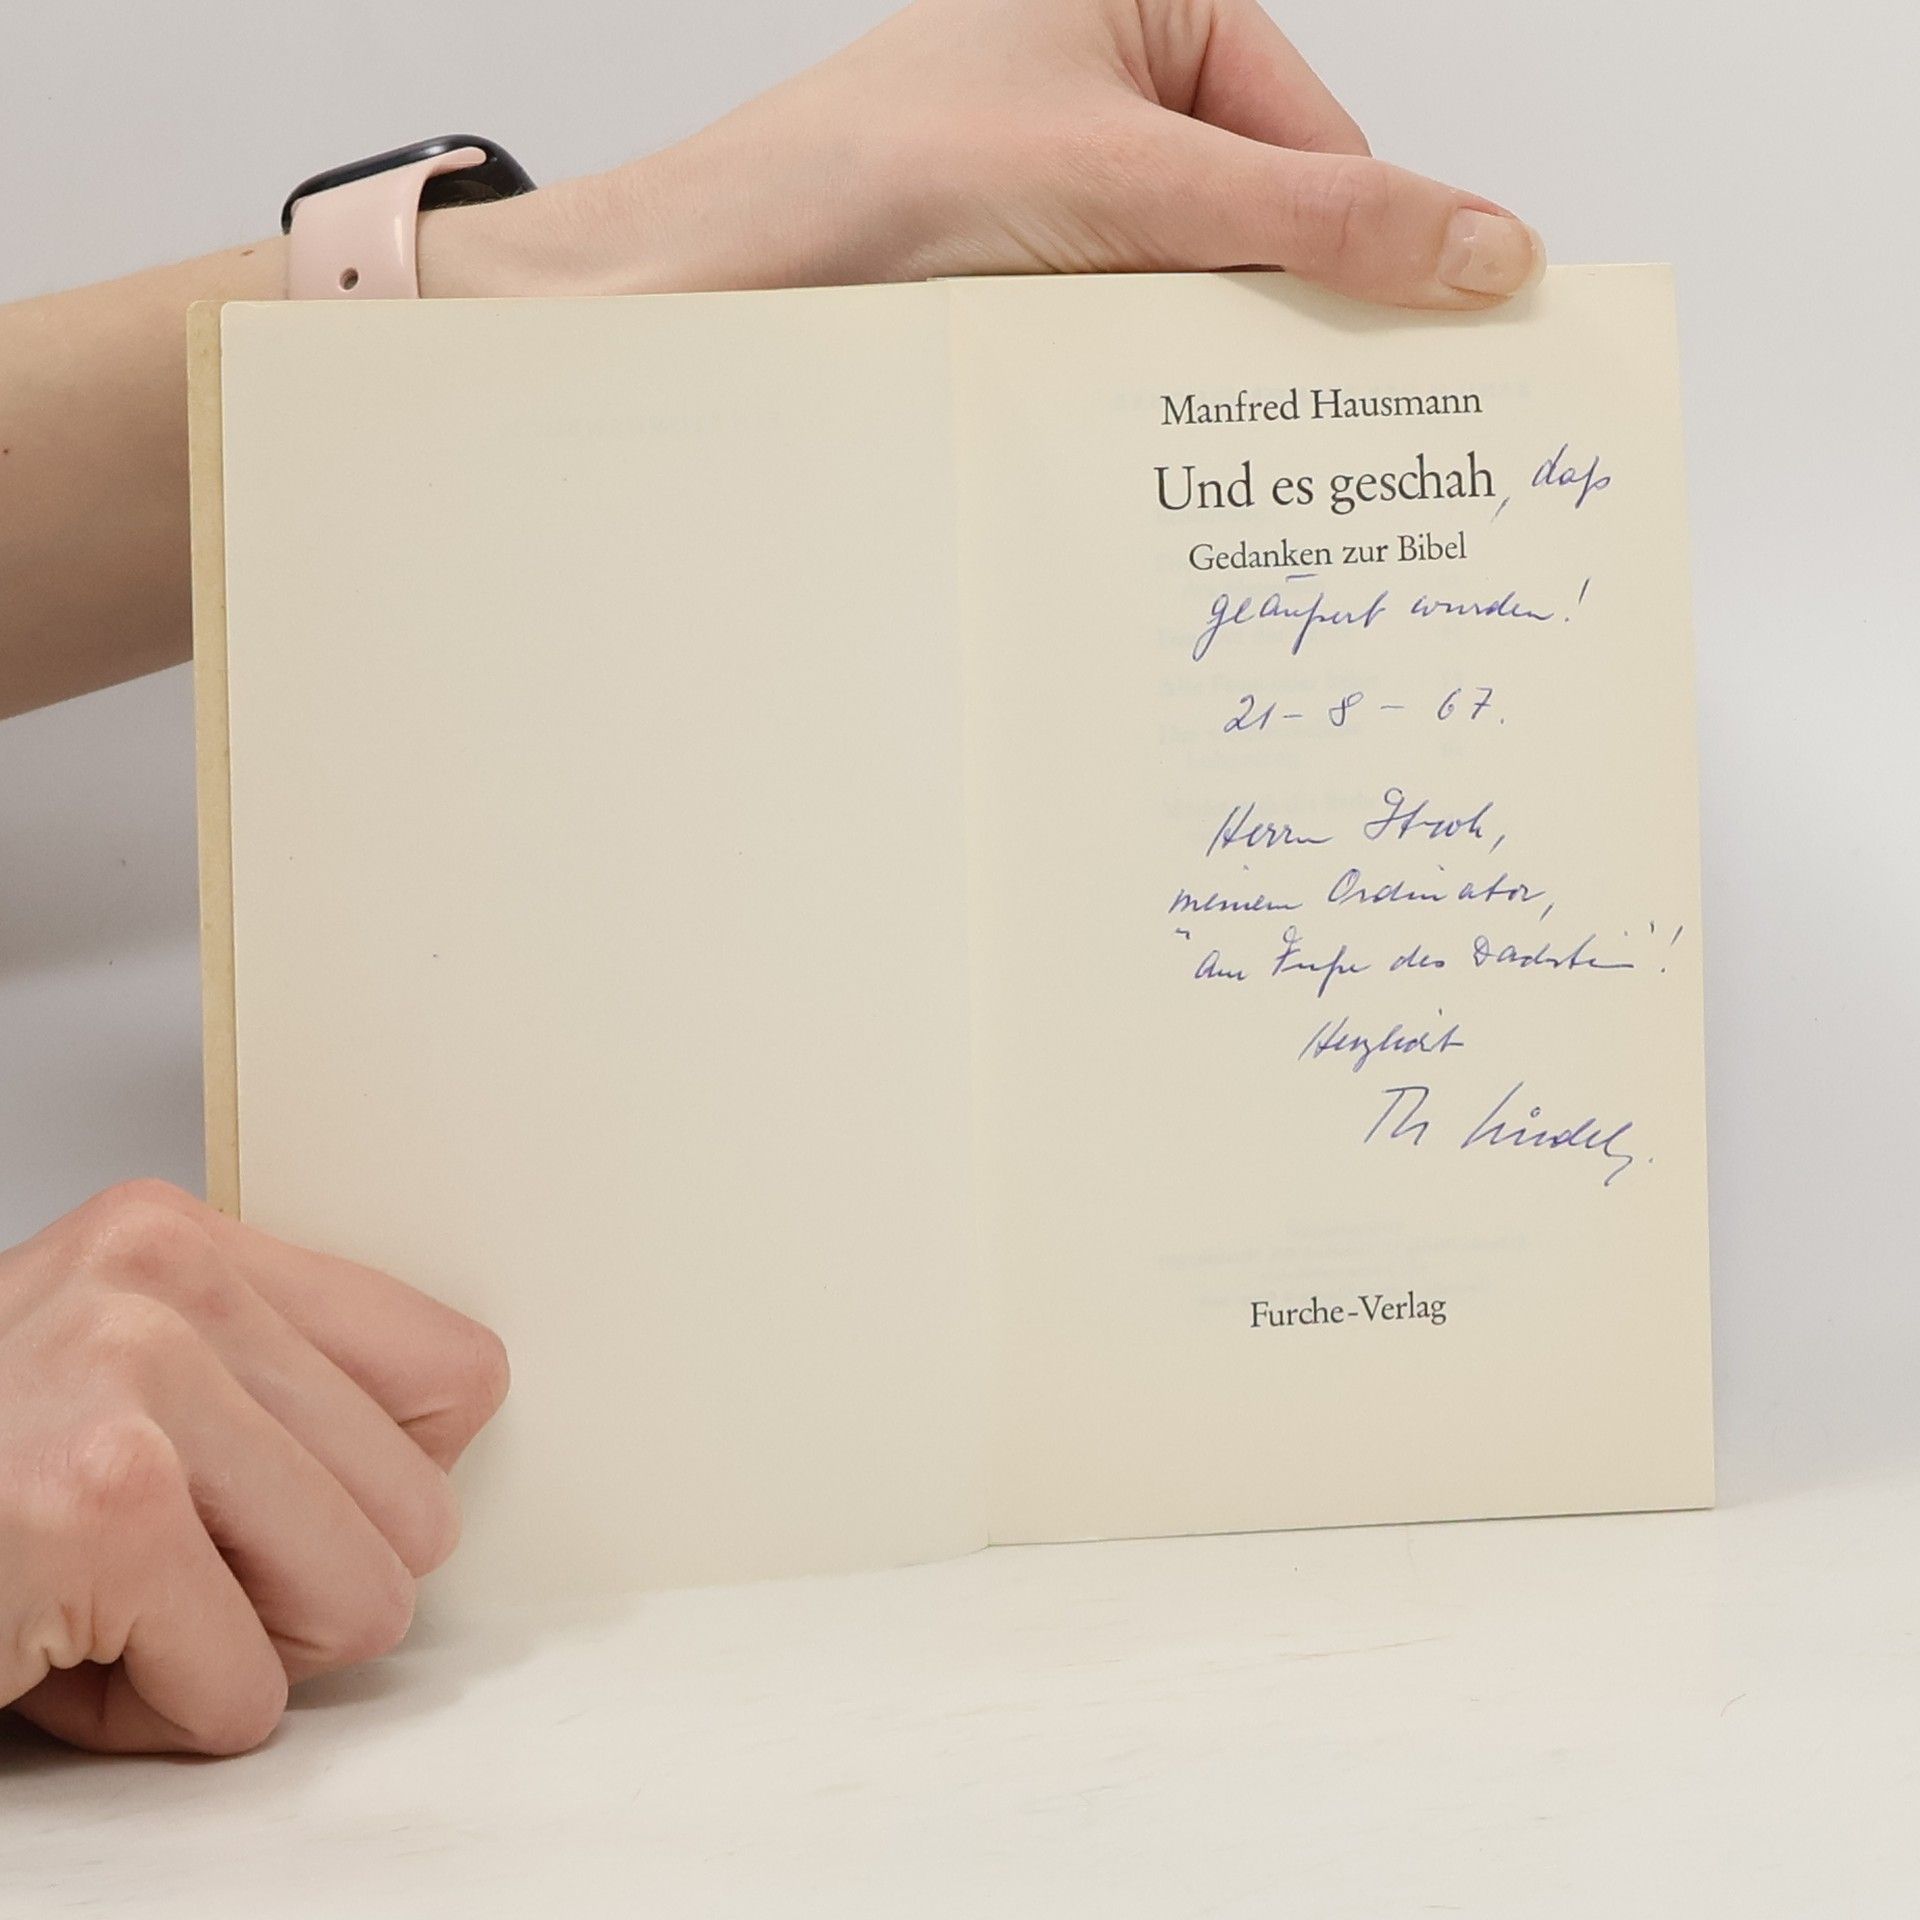 Manfred Hausmann
Und es geschah, daß
Gedanken zur Bibel
geäußert wurden!
21 - 8 - 67.
Herrn Stroh,
meinem Ordinator,
"am Fuße des Dachstein"!
Herzlichst
Th
Furche-Verlag